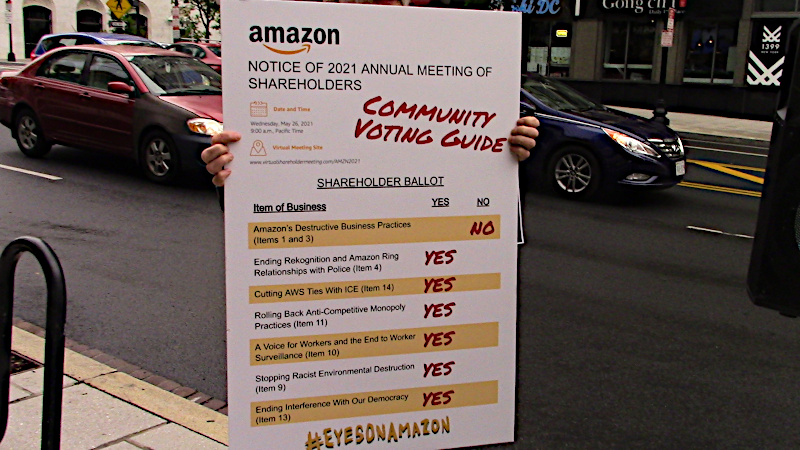 amazon
NOTICE OF 2021 ANNUAL MEETING OF
SHAREHOLDERS
Date and Time
Wednesday, May 26, 2021
9:00 a.m., Pacific Time
Virtual Meeting Site
www.virtualshareholdermeeting.com/AMZN2021
COMMUNITY
VOTING GUIDE
SHAREHOLDER BALLOT
Item of Business YES NO
Amazon's Destructive Business Practices
(Items 1 and 3) NO
Ending Rekognition and Amazon Ring
Relationships with Police (Item 4) YES
Cutting AWS Ties With ICE (Item 14) YES
Rolling Back Anti-Competitive Monopoly
Practices (Item 11) YES
A Voice for Workers and the End to Worker
Surveillance (Item 10) YES
Stopping Racist Environmental Destruction
(Item 9) YES
Ending Interference With Our Democracy
(Item 13) YES
#EYESONAMAZON
DC
1399